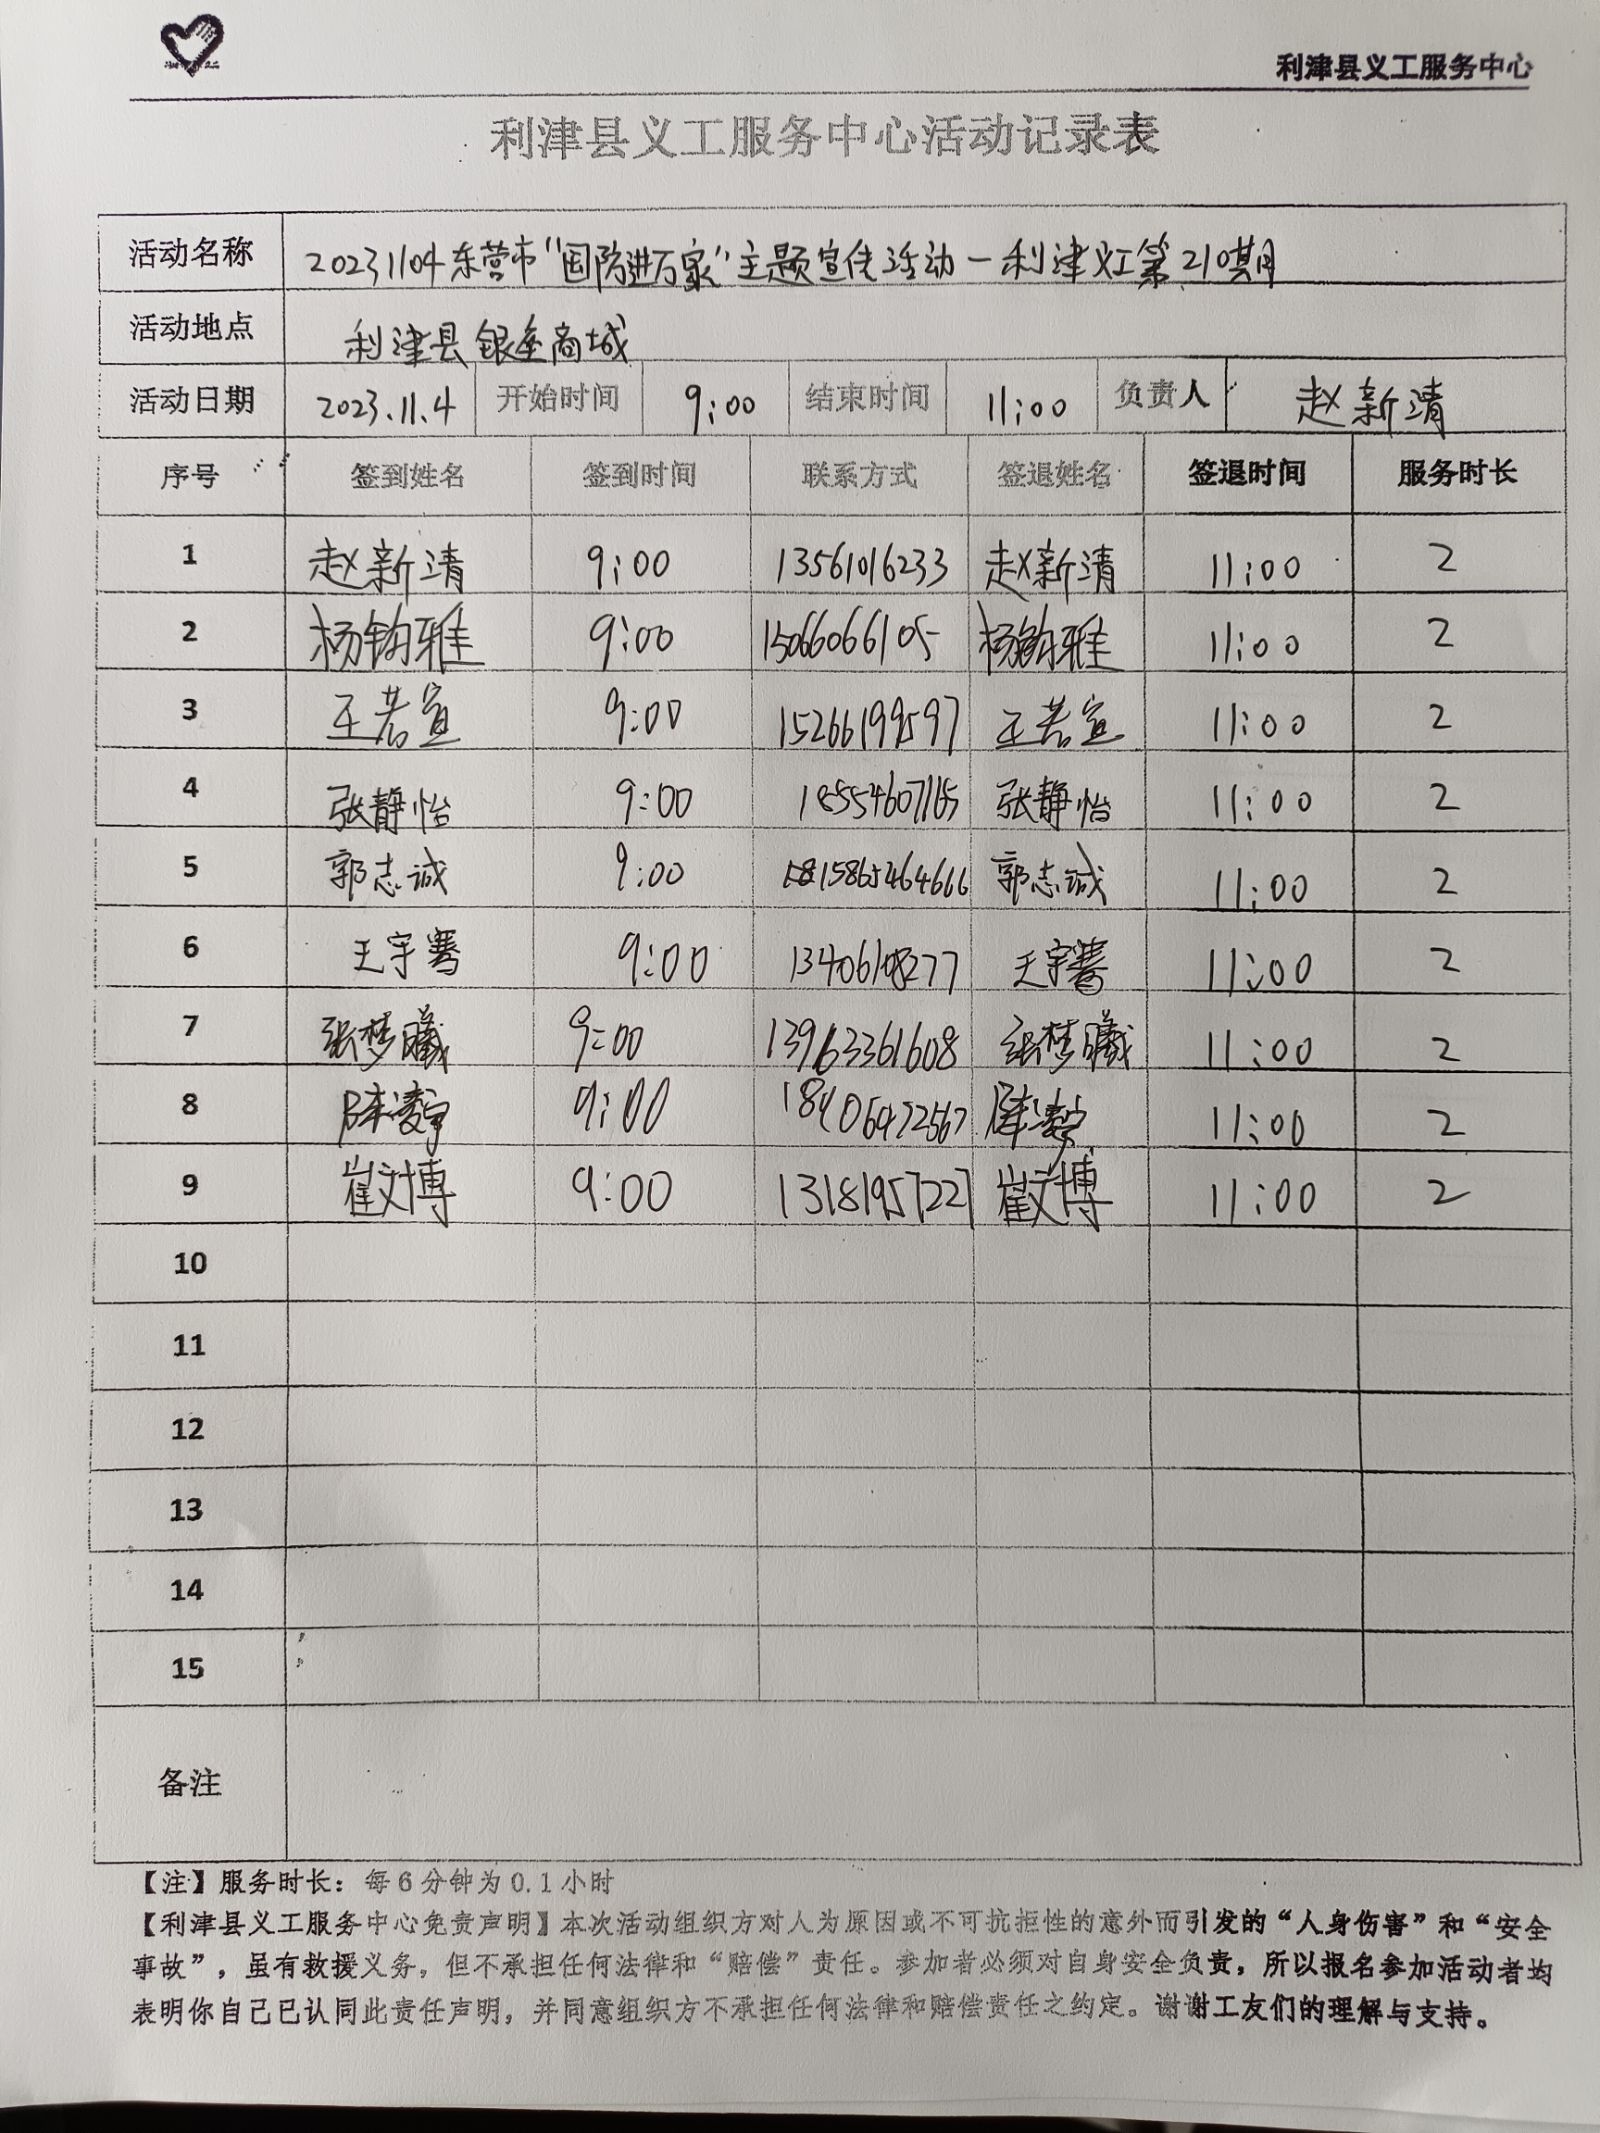 利津县义工服务中心
利津县义工服务中心活动记录表
活动名称 20231104东营市“国防进万家”主题宣传活动—利津义工第210期
活动地点 利津县银座商城
活动日期 2023.11.4 开始时间 9:00 结束时间 11:00 负责人 赵新清
序号 签到姓名 签到时间 联系方式 签退姓名 签退时间 服务时长
1 赵新清 9:00 13561016233 赵新清 11:00 2
2 杨钧雅 9:00 15066066105 杨钧雅 11:00 2
3 王若宣 9:00 15266199597 王若宣 11:00 2
4 张静怡 9:00 18554607165 张静怡 11:00 2
5 郭志诚 9:00 15865464666 郭志诚 11:00 2
6 王宇骞 9:00 13406108277 王宇骞 11:00 2
7 张梦曦 9:00 13963361608 张梦曦 11:00 2
8 陈凌宇 9:00 18406472567 陈凌宇 11:00 2
9 崔文博 9:00 13181957227 崔文博 11:00 2
10
11
12
13
14
15
备注
【注】服务时长：每6分钟为0.1小时
【利津县义工服务中心免责声明】本次活动组织方对人为原因或不可抗拒性的意外而引发的“人身伤害”和“安全
事故”，虽有救援义务，但不承担任何法律和“赔偿”责任。参加者必须对自身安全负责，所以报名参加活动者均
表明你自己已认同此责任声明，并同意组织方不承担任何法律和赔偿责任之约定。谢谢工友们的理解与支持。